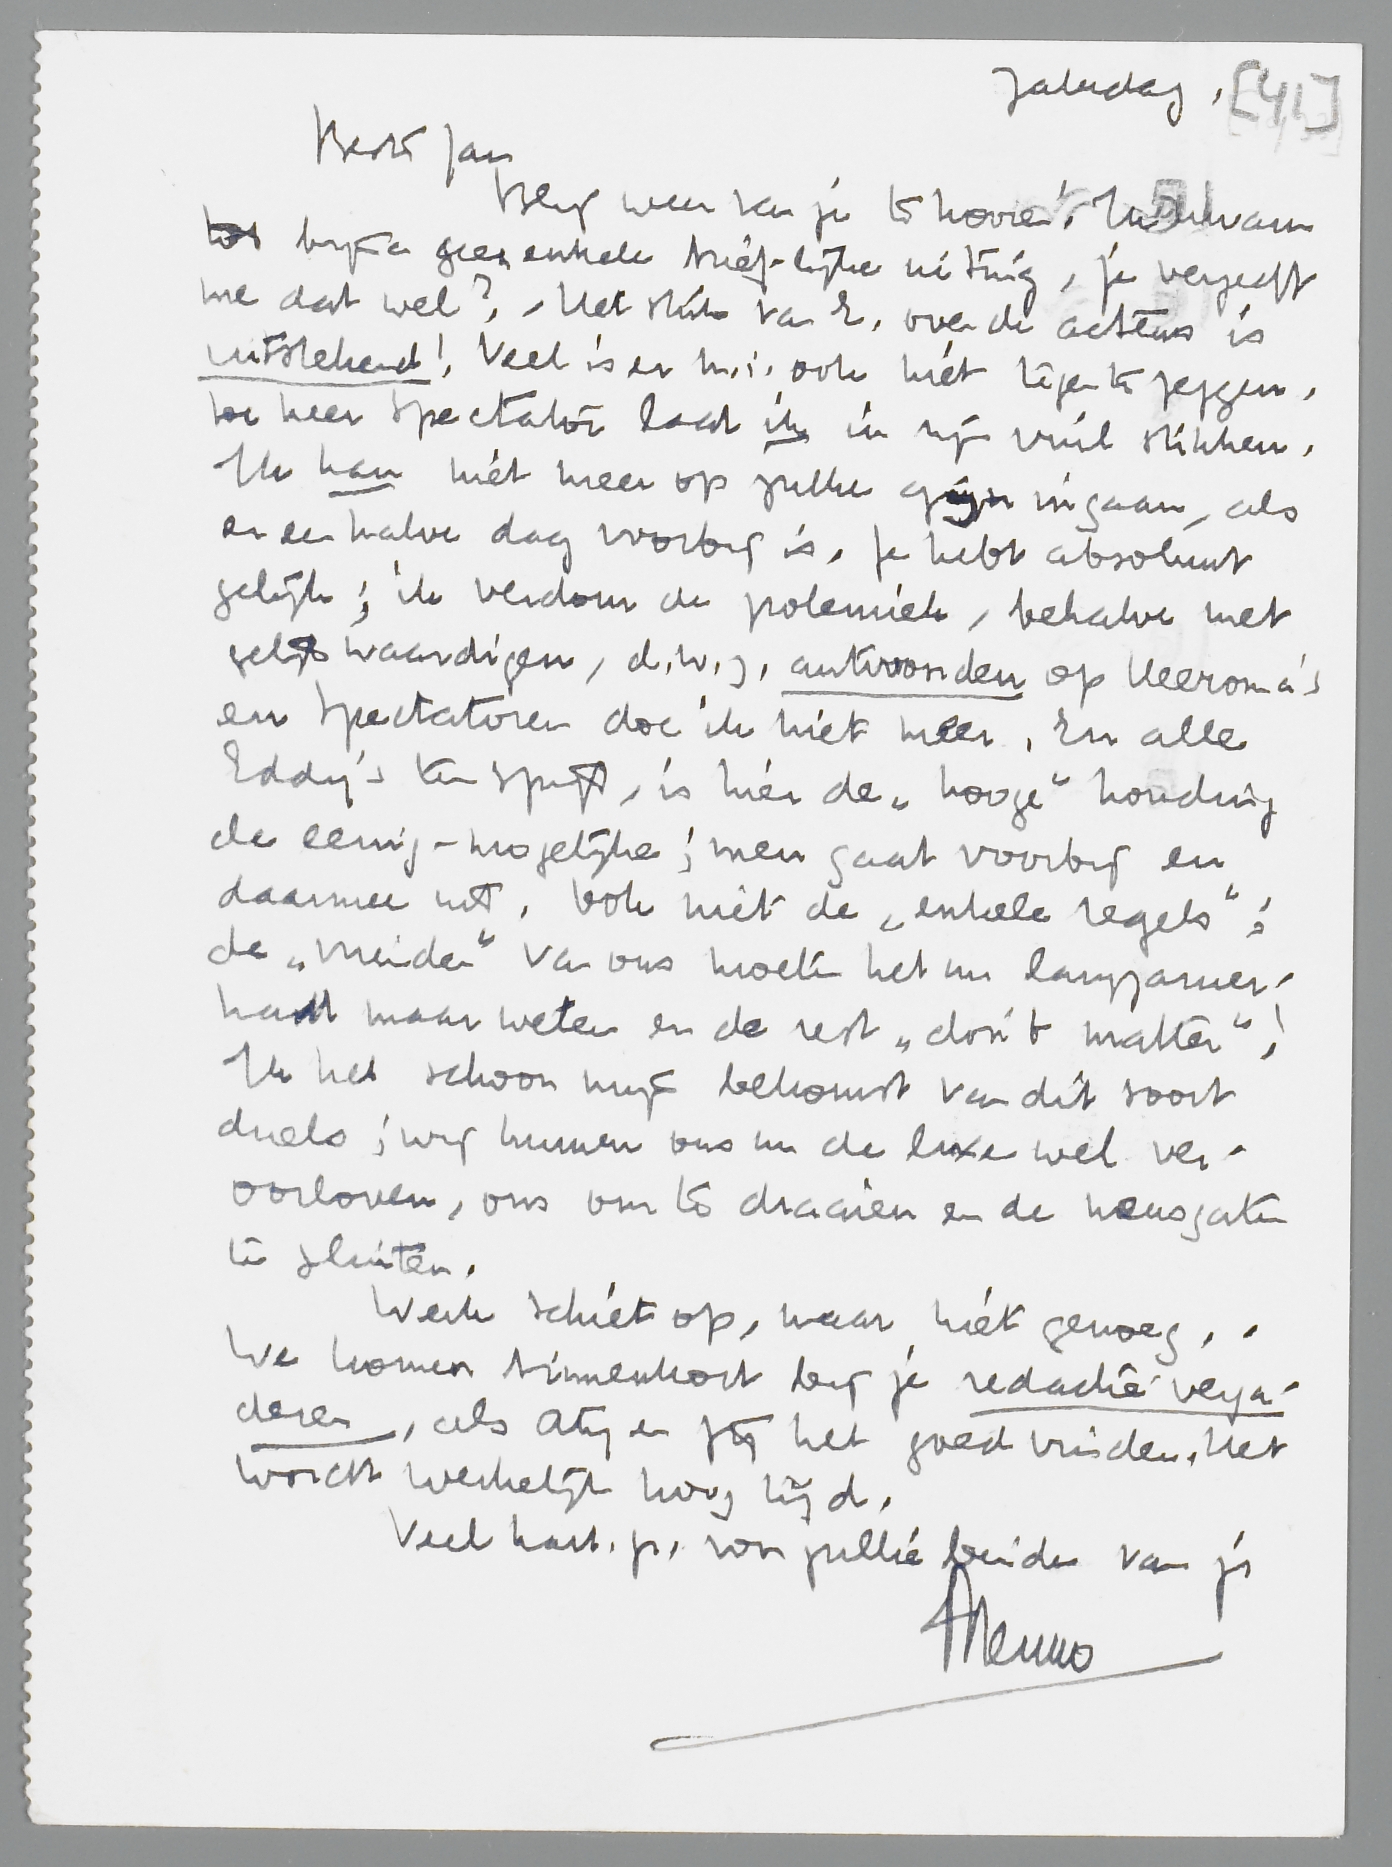 Zaterdag, [41]
Beste Jan
Blij weer van je te hooren!
bijna geen enkele briefelijke uiting, je vergeeft
me dat wel? Het stuk van E. over de acteurs is
uitstekend! Veel is er m.i. ook niét tegen te zeggen.
De heer Spectator laat ik in zijn vuil stikken.
Ik kan niét meer op zulke ingaan, als
er een halve dag voorbij is. Je hebt absoluut
gelijk; ik verdom de polemiek, behalve met
gelijkwaardigen, d.w.z. antwoorden op Heeroma's
en Spectatoren doe ik niet meer. En alle
Eddy's ten spijt, is hier de „hooge" houding
de eenig-mogelijke; men gaat voorbij en
daarmee uit. Ook niét de „enkele regels";
de „vrienden" van ons moeten het nu langzamer-
hand maar weten en de rest „don't matter"!
Ik heb schoon mijn bekomst van dit soort
duels; wij kunnen ons nu de luxe wel ver-
oorloven, ons om te draaien en de neusgaten
te sluiten.
Werk schiet op, maar niét genoeg.
We komen binnenkort bij je redactie verga-
deren, als Aty en jij het goed vinden. Het
wordt werkelijk hoog tijd.
Veel hart. gr. voor jullie beiden van je
Menno